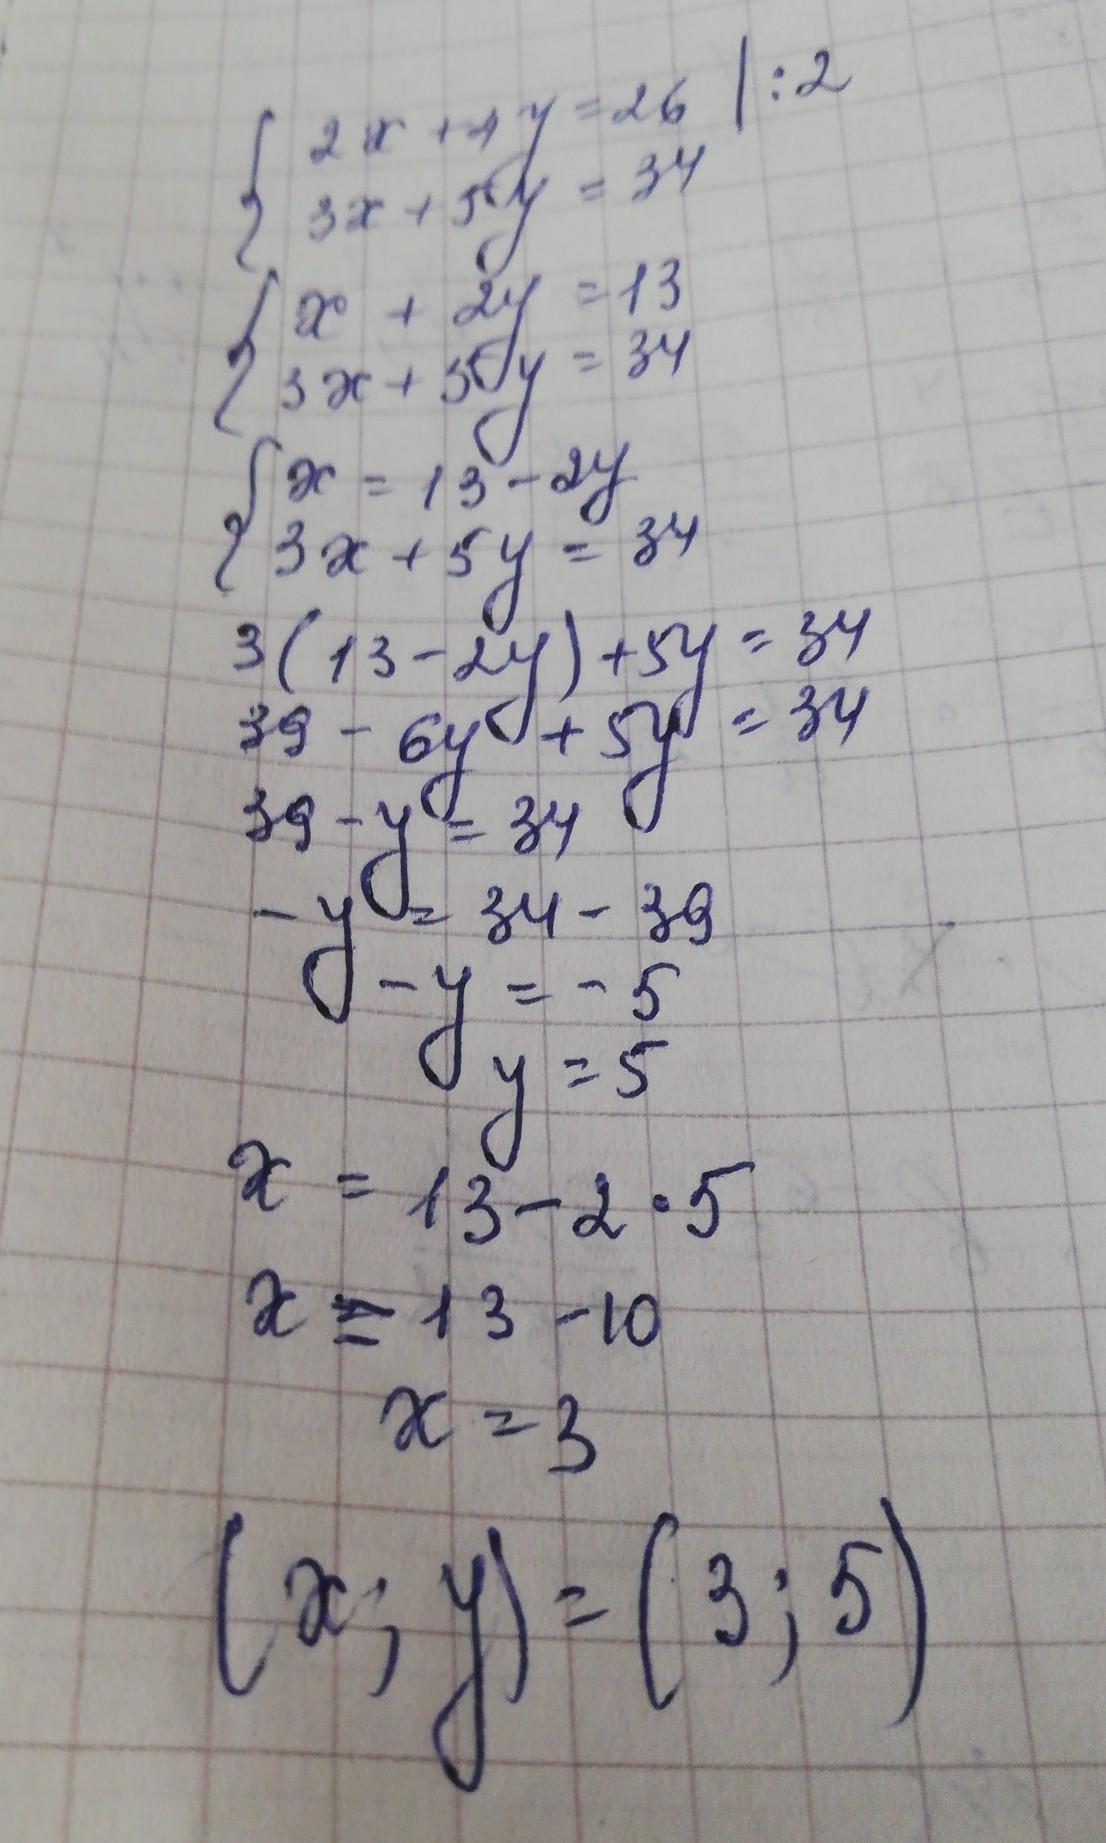 2x + 4y = 26 | : 2
3x + 5y = 34
x + 2y = 13
3x + 5y = 34
x = 13 - 2y
3x + 5y = 34
3(13 - 2y) + 5y = 34
39 - 6y + 5y = 34
39 - y = 34
- y = 34 - 39
- y = - 5
y = 5
x = 13 - 2 · 5
x = 13 - 10
x = 3
(x; y) = (3; 5)